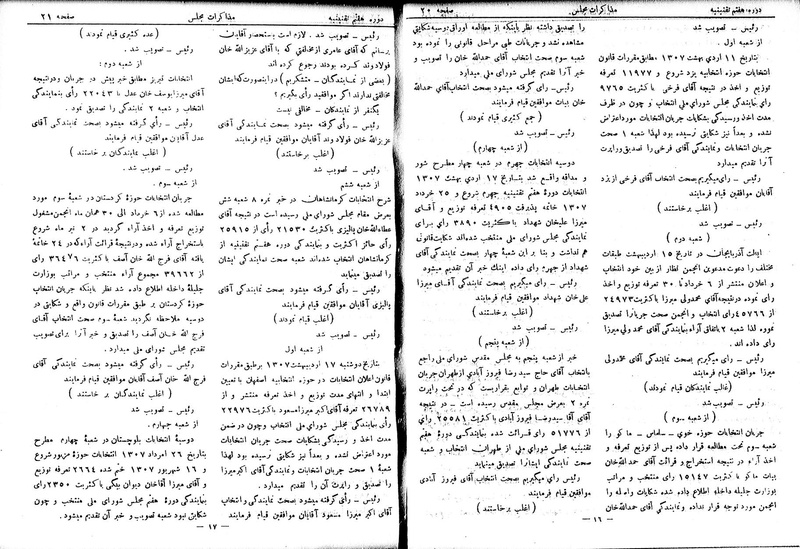 دوره هفتم تقنینیه
مذاکرات مجلس
صفحه ۲۰
رئیس - تصویب شد
از شعبه اول .
بتاریخ ۱۱ اردی بهشت ۱۳۰۷ مطابق مقررات قانون
انتخابات حوزه انتخابیه یزد شروع و ۱۱۹۷۷ تعرفه
توزیع و اخذ در نتیجه آقای فرخی باکثریت ۹۷۶۵
رای نماینده گی مجلس شورای ملی انتخاب و چون در ظرف
مدت اخذ و رسیدگی بشکایات جریان انتخابات مورد اعتراض
نشده و بعداً نیز شکایتی نرسیده بود لهذا شعبه ۱ صحت
جریان انتخابات و نمایندگی آقای فرخی را تصدیق و راپرت
آنرا تقدیم میدارد
رئیس - رای میگیریم بصحت انتخاب آقای فرخی از یزد
آقایان موافقین قیام فرمایند
( اغلب برخاستند )
رئیس - تصویب شد
( شعبه دوم )
ایالت آذربایجان در تاریخ ۱۵ اردیبهشت طبقات
مختلف را دعوت مدعوین انجمن نظار از بین خود انتخاب
و اعلان منتشر از ۶ خرداد تا ۳۰ تعرفه توزیع و اخذ
رای نموده در نتیجه آقای محمد ولی میرزا باکثریت ۲۴۹۷۳
از ۴۵۷۶۶ رای انتخاب و انجمن صحت جریان را تصدیق
نموده لذا شعبه ۲ باتفاق آراء بنمایندگی آقای محمد ولی میرزا
رای داده اند .
رئیس - رای میگیریم بصحت نمایندگی آقای محمدولی
میرزا موافقین قیام فرمایند
(غالب نمایندگان قیام نمودند)
رئیس - تصویب شد
( از شعبه سوم )
جریان انتخابات حوزه خوی - سلماس - ماکو را
شعبه سوم تحت مطالعه قرار داده پس از توزیع تعرفه و
اخذ آراء در نتیجه استخراج و قرائت آقای حمدالله خان
باکثریت ۱۵۱۴۷ رای منتخب و مراتب
بوزارت جلیله داخله اطلاع داده شده شکایات واصله را
انجمن مورد توجه قرار نداده و نمایندگی آقای حمدالله خان
را تصدیق داشته نظر باینکه از مطالعه اوراق دوسیه شکایتی
مشاهده نشد و جریانات طی مراحل قانونی را نموده بود
شعبه سوم صحت انتخاب آقای حمدالله خان را تصویب و
خبر آنرا تقدیم مجلس شورای ملی میدارد
رئیس - رای گرفته میشود بصحت انتخاب آقای حمدالله
خان بیات موافقین قیام فرمایند
( جمع کثیری قیام نمودند )
رئیس - تصویب شد
( از شعبه چهارم )
دوسیه انتخابات جهرم در شعبه چهار مطرح شور
و مداقه واقع شد بتاریخ ۱۷ اردی بهشت ۱۳۰۷
انتخابات دوره هفتم تقنینیه جهرم شروع و ۲۵ خرداد
۱۳۰۷ خاتمه پذیرفت ۴۹۰۵ تعرفه توزیع و آقای
میرزا علیخان شهداد باکثریت ۳۸۹۰ رای برای
نمایندگی مجلس شورای ملی منتخب شده‌اند شکایت قانونی
هم نداشت و بنا بر این شعبه چهار بصحت نمایندگی آقای
شهداد از جهرم رای داده اینک خبر آن تقدیم میشود
رئیس - رای میگیریم بصحت نمایندگی آقای میرزا
علی خان شهداد موافقین قیام فرمایند
( اغلب برخاستند )
رئیس - تصویب شد
( از شعبه پنجم )
خبر از شعبه پنجم به مجلس مقدس شورای ملی راجع
بانتخاب آقای حاج سید رضا فیروز آبادی از طهران جریان
انتخابات طهران و توابع بقراریست که در تحت راپرت
نمره ۲ بعرض مجلس مقدس رسیده است - در نتیجه
آقای آقا سیدرضا فیروز آبادی باکثریت ۲۵۵۸۱ رای
از ۵۱۷۷۶ رای قرائت شده بنمایندگی دورهٔ هفتم
تقنینیه مجلس شورای ملی از طهران انتخاب و شعبه
صحت نمایندگی ایشان را تصدیق مینماید
رئیس - رای میگیریم بصحت نمایندگی آقای فیروز آبادی
موافقین قیام فرمایند
( اغلب برخاستند )
— ۱۶ —
دوره هفتم تقنینیه
مذاکرات مجلس
صفحه ۲۱
رئیس - تصویب شد . لازم است باستحضار آقایان
برسانم که آقای عامری از مخالفتی که با آقای عزیزالله خان
فولادوند کرده بودند رجوع کرده اند
(بعضی از نمایندگان - متشکریم) در اینصورت که ایشان
مخالفتی ندارند اگر موافقید رأی بگیریم ؟
یکنفر از نمایندگان - مخالفی نیست
رئیس - رأی گرفته میشود بصحت نمایندگی آقای
عزیزالله خان فولادوند آقایان موافقین قیام فرمایند
( اغلب برخاستند )
رئیس - تصویب شد
از شعبه ششم
شرح انتخابات کرمانشاهان در خبر نمره ۸ شعبه شش
بعرض مقام مجلس شورای ملی رسیده است در نتیجه آقای
عطاءالله خان پالیزی باکثریت ۲۱۵۳۰ رأی از ۲۵۹۱۵
رأی حائز اکثریت و بنمایندگی دوره هفتم تقنینیه از
کرمانشاهان انتخاب شده‌اند شعبه صحت نمایندگی ایشان
را تصدیق مینماید
رئیس - رأی گرفته میشود بصحت نمایندگی آقای
پالیزی آقایان موافقین قیام فرمایند
( اغلب قیام نمودند )
رئیس - تصویب شد
از شعبه اول
بتاریخ دوشنبه ۱۷ اردیبهشت ۱۳۰۷ بر طبق مقررات
قانون اعلان انتخابات در حوزه انتخابیه اصفهان با تعیین
ابتدا و انتهای مدت توزیع و اخذ تعرفه منتشر و از
۲۶۷۸۹ تعرفه آقای اکبر میرزا مسعود باکثریت ۲۲۹۷۶
رأی بنمایندگی مجلس شورای ملی انتخاب و چون در ضمن
مدت اخذ و رسیدگی بشکایات صحت جریان انتخابات
مورد اعتراض نشده و بعداً نیز شکایتی نرسیده بود لهذا
شعبه ۱ صحت جریان انتخابات و نمایندگی آقای اکبر میرزا
را تصدیق و راپرت آن را تقدیم میدارد .
رئیس - رأی گرفته میشود بصحت نمایندگی و انتخاب
آقای اکبر میرزا مسعود آقایان موافقین قیام فرمایند
(عده کثیری قیام نمودند )
رئیس - تصویب شد .
از شعبه دوم :
انتخابات تبریز مطابق خبر پیش در جریان و در نتیجه
آقای میرزا یوسف خان عدل با ۲۲۰۴۳ رأی بنمایندگی
انتخاب و شعبه ۲ نمایندگی را تصدیق نمود .
رئیس - رأی گرفته میشود بصحت نمایندگی آقای
عدل آقایان موافقین قیام فرمایند
( اغلب نمایندگان بر خاستند )
رئیس - تصویب شد .
از شعبه سوم .
جریان انتخابات حوزه کردستان در شعبهٔ سوم مورد
مطالعه شده از ۶ خرداد الی ۳۰ همان ماه انجمن مشغول
توزیع تعرفه و اخذ آراء گردید در ۲ تیر ماه شروع
باستخراج آراء شده و در نتیجه قرائت آراء که در ۲۴ خاتمه
یافته آقای فرج الله خان آصف باکثریت ۳۶۴۷۶ رای
از ۳۹۶۶۲ مجموع آراء منتخب و مراتب بوزارت
جلیله داخله اطلاع داده شد نظر باینکه جریان انتخاب
حوزه کردستان بر طبق مقررات قانون واقع و شکایتی در
دوسیه ملاحظه نگردید شعبهٔ سوم صحت انتخاب آقای
فرج الله خان آصف را تصدیق و خبر آنرا برای تصویب
تقدیم مجلس شورای ملی میدارد .
رئیس - رأی گرفته میشود بصحت نمایندگی آقای
فرج الله خان آصف آقایان موافقین قیام فرمایند
( اغلب نمایندگان بر خاستند )
رئیس - تصویب شد
از شعبه چهارم .
دوسیهٔ انتخابات بلوچستان در شعبهٔ چهارم مطرح
بتاریخ ۲۶ امرداد ۱۳۰۷ انتخابات حوزه مزبور شروع
و ۱۶ شهریور ۱۳۰۷ ختم شده ۲۶۶۴ تعرفه توزیع
و آقای میرزا آقاخان دیوان بیگی باکثریت ۲۳۵۰ رای
بنمایندگی دورهٔ هفتم مجلس شورای ملی منتخب و چون
شکایتی نبود شعبه تصویب و خبر آن تقدیم میشود .
— ۱۷ —